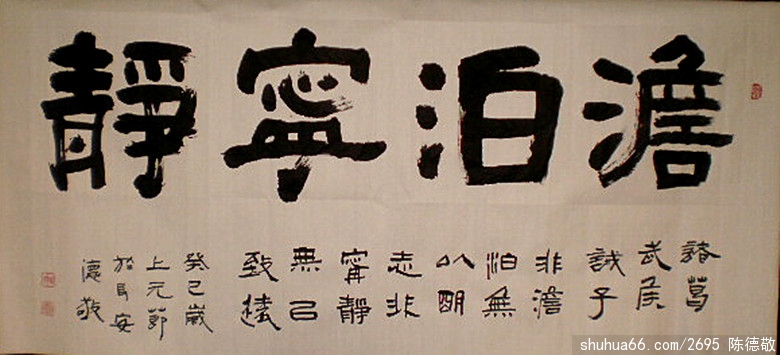 澹泊寧靜
諸葛
武侯
誡子
非澹
泊無
以明
志非
寧靜
無以
致遠
癸巳歲
上元節
於長安
德敬
shuhua66.com/2695 陈德敬